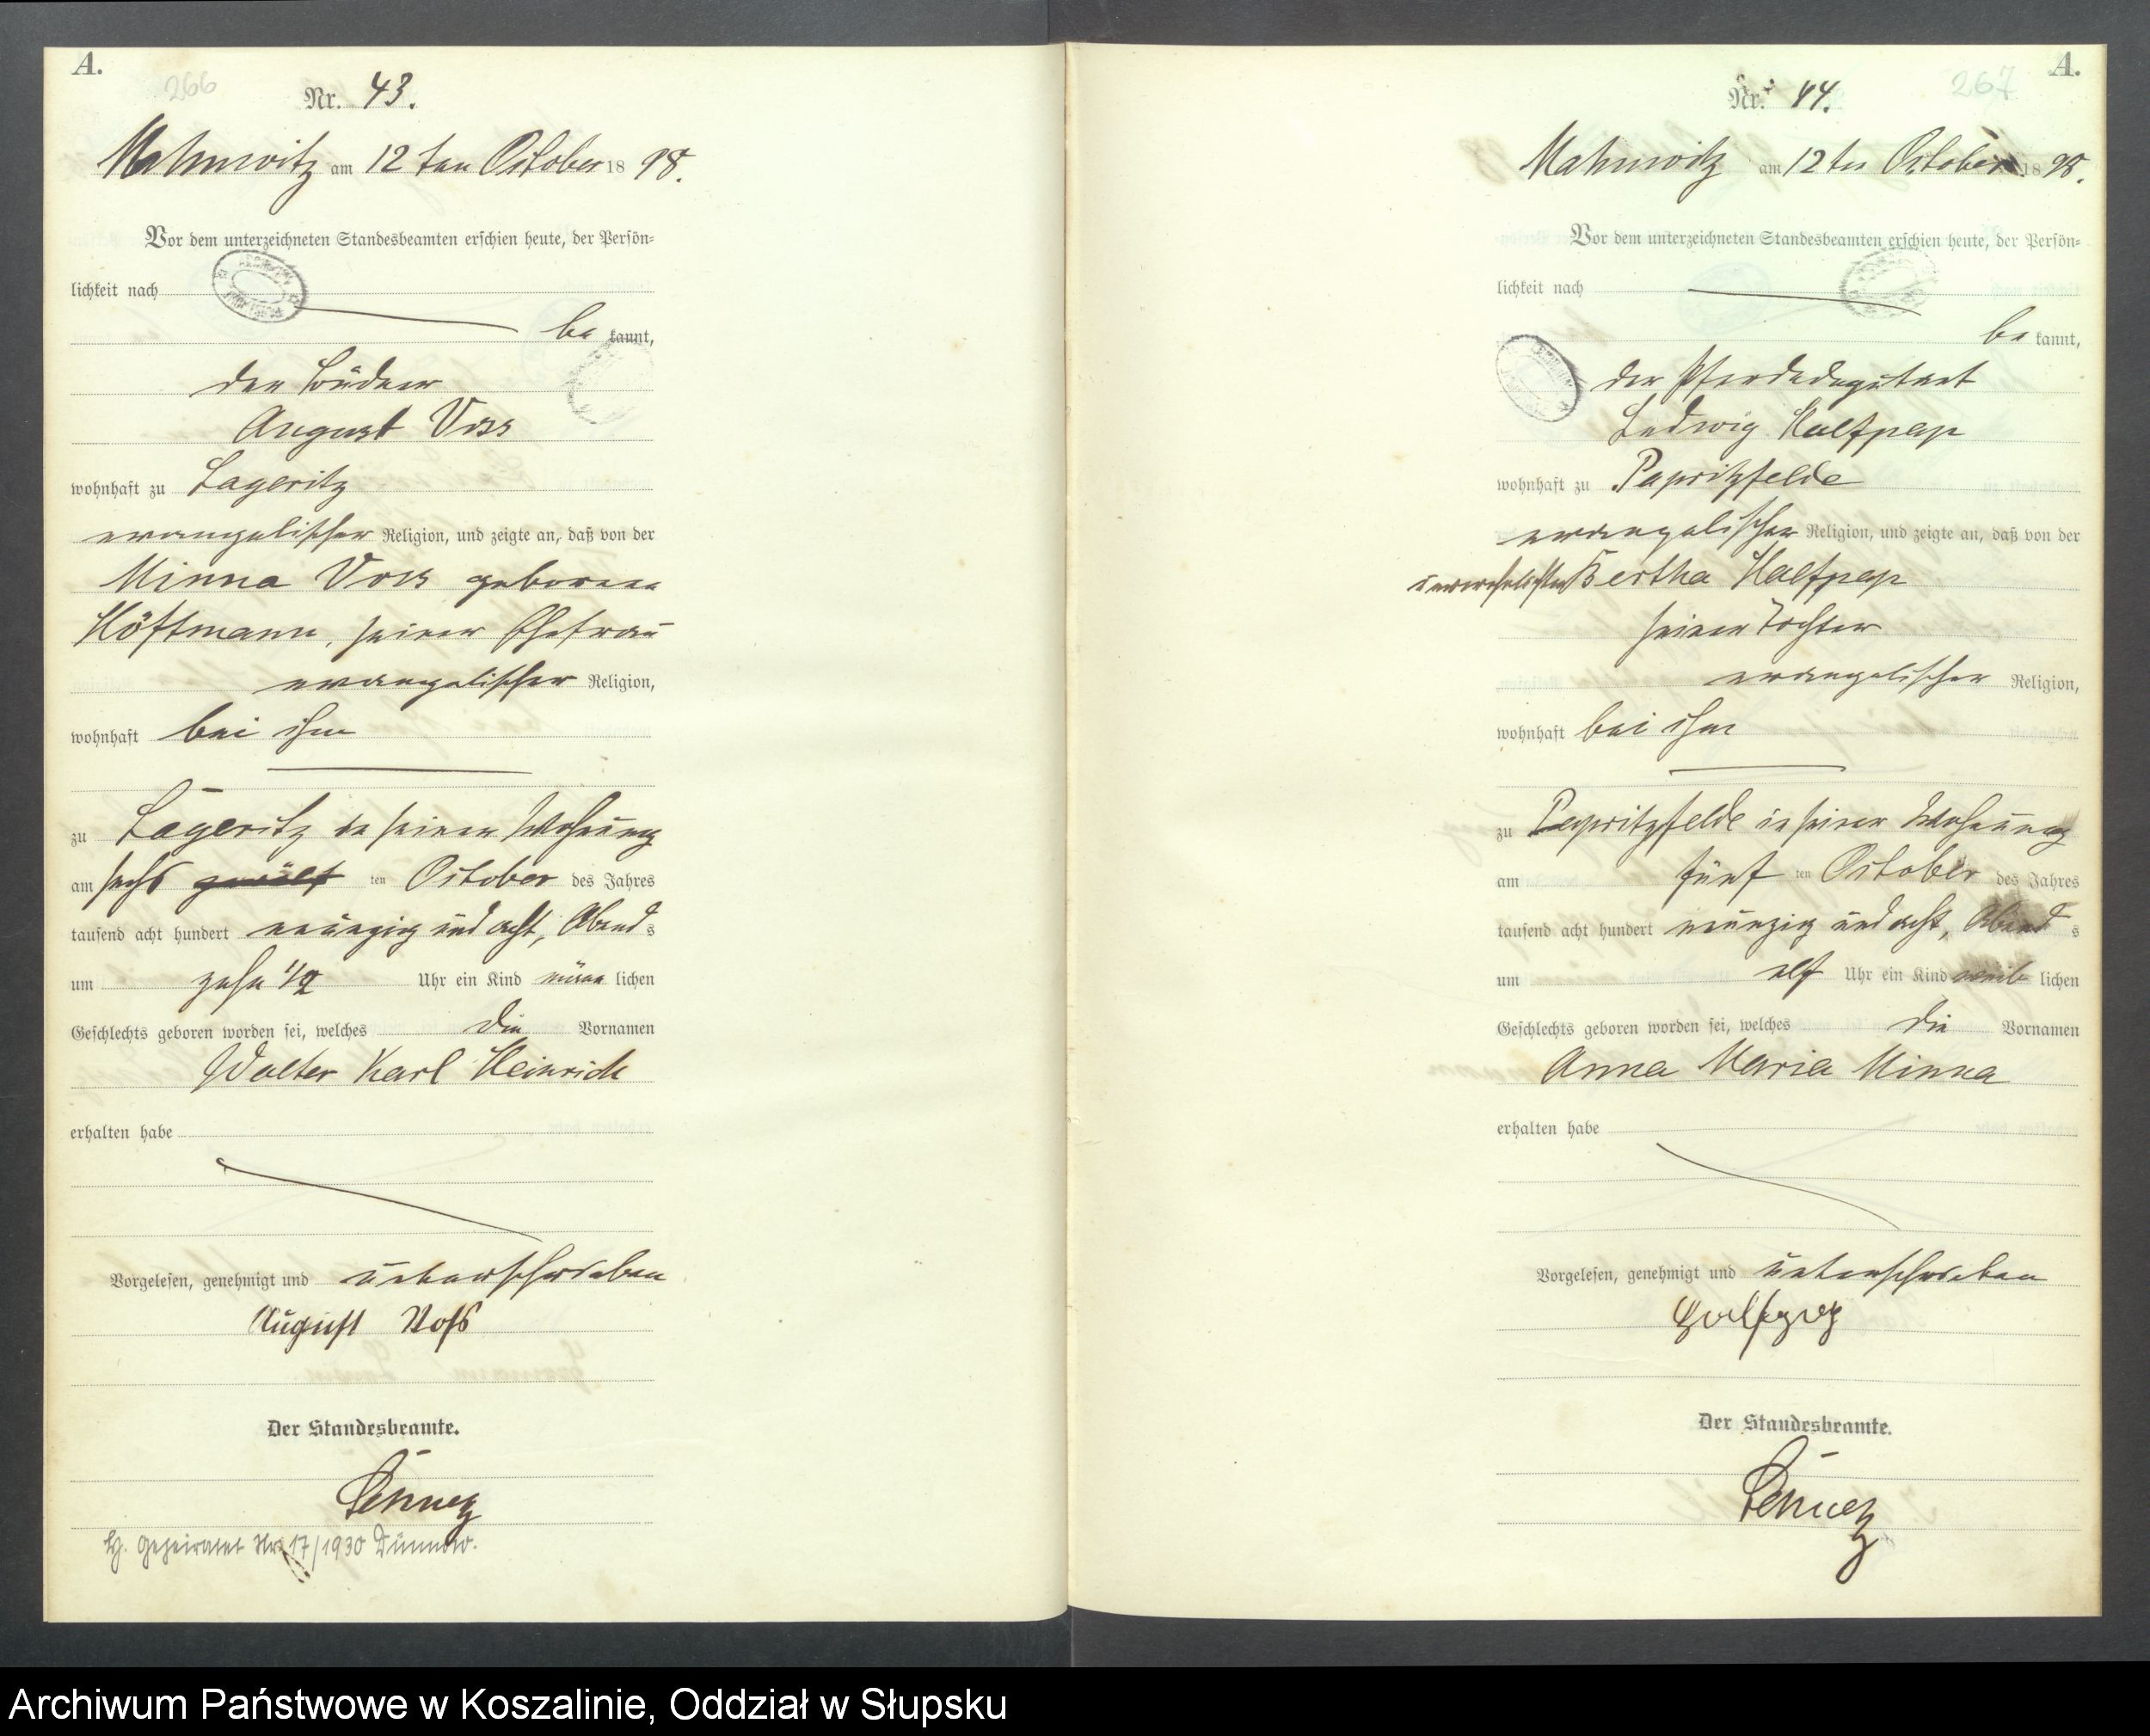 A.
266
Nr. 43.
Mahnwitz am 12 ten October 1898.
Vor dem unterzeichneten Standesbeamten erschien heute, der Persön=
lichkeit nach
be kannt,
der Büdner
August Voss
wohnhaft zu Lageritz
evangelischer Religion, und zeigte an, daß von der
Minna Voss geborene
Höftmann, seiner Ehefrau
evangelischer Religion,
wohnhaft bei ihm
zu Lageritz in seiner Wohnung
am sechs zwölf ten October des Jahres
tausend acht hundert neunzig und acht, Abends
um zehn 1/2 Uhr ein Kind männlichen
Geschlechts geboren worden sei, welches die Vornamen
Walter Karl Heinrich
erhalten habe
Vorgelesen, genehmigt und unterschrieben
August Voß
Der Standesbeamte.
H. Geheiratet Nr. 17/1930 Dünnow.
A.
267
Nr. 44.
Mahnwitz am 12 ten October 1898.
Vor dem unterzeichneten Standesbeamten erschien heute, der Persön=
lichkeit nach
be kannt,
der
Ludwig Halfpap
wohnhaft zu Papritzfelde
evangelischer Religion, und zeigte an, daß von der
unverehelichten Bertha Halfpap
seiner Tochter
evangelischer Religion,
wohnhaft bei ihm
zu Papritzfelde in seiner Wohnung
am fünf ten October des Jahres
tausend acht hundert neunzig und acht, Abends
um elf Uhr ein Kind weiblichen
Geschlechts geboren worden sei, welches die Vornamen
Anna Maria Minna
erhalten habe
Vorgelesen, genehmigt und unterschrieben
Halfpap
Der Standesbeamte.
Archiwum Państwowe w Koszalinie, Oddział w Słupsku